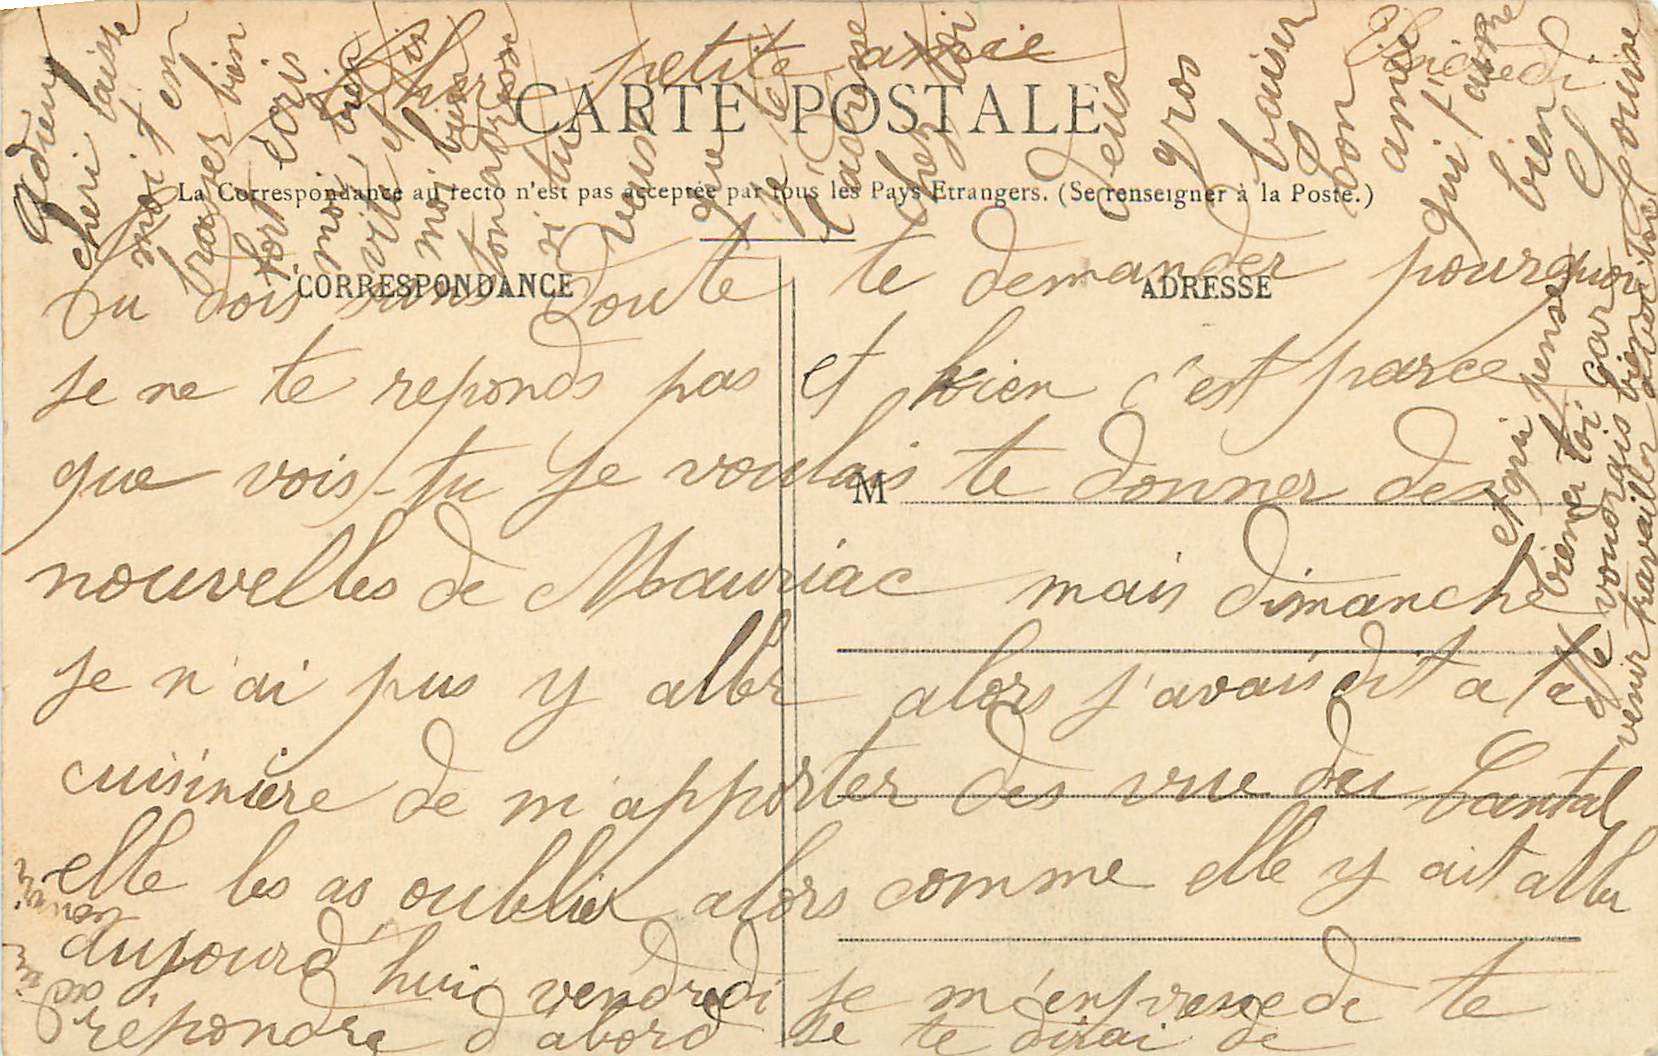 Vendredi
Chere petite amie
CARTE POSTALE
La Correspondance au recto n'est pas acceptée par tous les Pays Etrangers. (Se renseigner à la Poste.)
CORRESPONDANCE
ADRESSE
M
Tu dois sans doute te demander pourquoi
je ne te reponds pas et bien c'est parce
que vois-tu je voulais te donner des
nouvelles de Mauriac mais dimanche
je n'ai pus y aller alors j'avais dit a la
cuisiniere de m'apporter des vue du Cantal
elle les as oublier alors comme elle y ait aller
aujourd'hui vendredi je m'enprene de te
répondre d'abord je te dirai de
venir travailler avec toi
je voudrais bien
bien a toi car
et qui pense
Adieu
cheri laisse
moi t'en
brasser bien
fort écris
moi bien
vite et dis
moi bien
ton adresse
si tu
veux
que je te
l'adresse
chez toi
Deux
gros
baiser
ton
amie
qui t'aime
bien
Louise